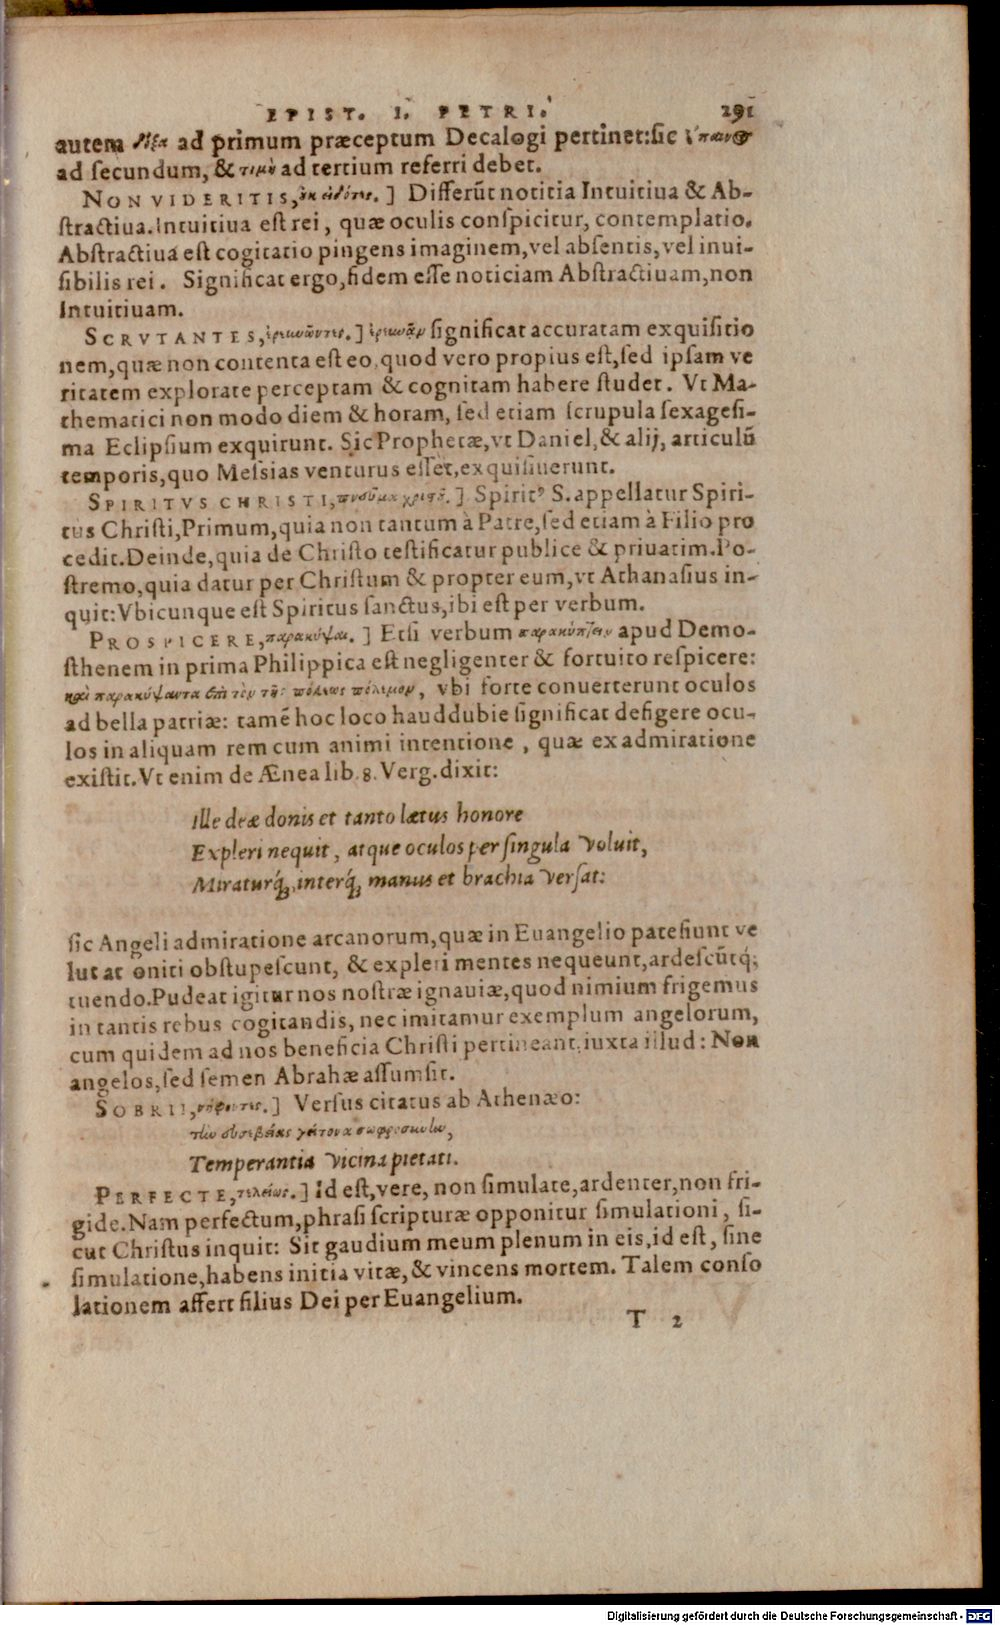 EPIST. I. PETRI. 291
autem δόξα ad primum præceptum Decalogi pertinet:sic ἔπαινος
ad secundum, & τιμὴ ad tertium referri debet.
NON VIDERITIS, οὐκ εἰδότες.] Differūt notitia Intuitiua & Ab-
stractiua.Intuitiua est rei, quæ oculis conspicitur, contemplatio.
Abstractiua est cogitatio pingens imaginem,vel absentis,vel inui-
sibilis rei. Significat ergo,fidem esse noticiam Abstractiuam,non
Intuitiuam.
SCRVTANTES, ἐρευνῶντες.] ἐρευνᾶν significat accuratam exquisitio
nem,quæ non contenta est eo,quod vero propius est,sed ipsam ve
ritatem explorate perceptam & cognitam habere studet. Vt Ma-
thematici non modo diem & horam, sed etiam scrupula sexagesi-
ma Eclipsium exquirunt. Sic Prophetæ,vt Daniel,& alij, articulū
temporis,quo Messias venturus esset,exquisiuerunt.
SPIRITVS CHRISTI, πνεῦμα χριστοῦ.] Spirit⁹ S. appellatur Spiri-
tus Christi,Primum,quia non tantum à Patre,sed etiam à Filio pro
cedit.Deinde,quia de Christo testificatur publice & priuatim.Po-
stremo,quia datur per Christum & propter eum,vt Athanasius in-
quit:Vbicunque est Spiritus sanctus,ibi est per verbum.
PROSPICERE, παρακύψαι.] Etsi verbum παρακύπτειν apud Demo-
sthenem in prima Philippica est negligenter & fortuito respicere:
καὶ παρακύψαντα ἐπὶ τὸν τῆς πόλεως πόλεμον, vbi forte conuerterunt oculos
ad bella patriæ: tamē hoc loco hauddubie significat defigere ocu-
los in aliquam rem cum animi intentione, quæ ex admiratione
existit.Vt enim de Ænea lib.8.Verg.dixit:
Ille deæ donis et tanto lætus honore
Expleri nequit, atque oculos per singula voluit,
Miraturq́;,interq́; manus et brachia versat:
sic Angeli admiratione arcanorum,quæ in Euangelio patefiunt ve
lut at oniti obstupescunt, & expleri mentes nequeunt,ardescūtq́;
tuendo.Pudeat igitur nos nostræ ignauiæ,quod nimium frigemus
in tantis rebus cogitandis, nec imitamur exemplum angelorum,
cum quidem ad nos beneficia Christi pertineant,iuxta illud: Non
angelos,sed semen Abrahæ assumsit.
SOBRII, νήφοντες.] Versus citatus ab Athenæo:
τῶν εὐσεβείας γείτονα σωφροσύνην,
Temperantia vicina pietati.
PERFECTE, τελείως.] Id est,vere, non simulate,ardenter,non fri-
gide.Nam perfectum,phrasi scripturæ opponitur simulationi, si-
cut Christus inquit: Sit gaudium meum plenum in eis,id est, sine
simulatione,habens initia vitæ,& vincens mortem. Talem conso
lationem affert filius Dei per Euangelium.
T 2
Digitalisierung gefördert durch die Deutsche Forschungsgemeinschaft - DFG